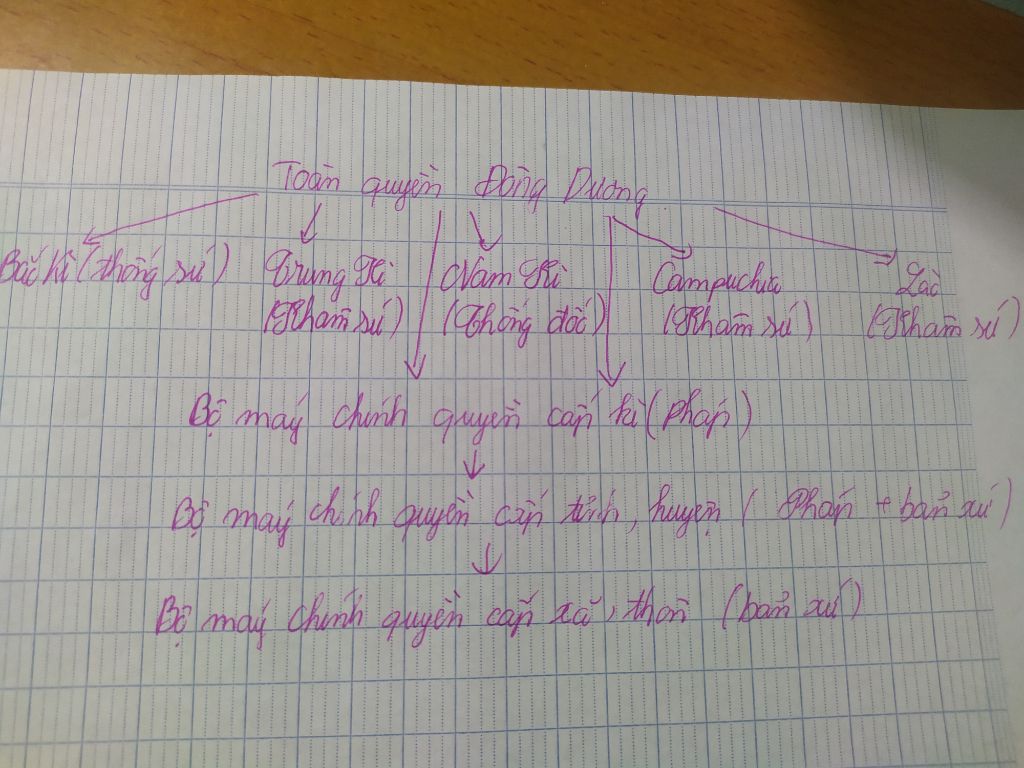 Toàn quyền Đông Dương
Bắc kì (thống sứ) Trung Kì Nam Kì Campuchia Lào
(Khâm sứ) (Thống đốc) (Khâm sứ) (Khâm sứ)
Bộ máy chính quyền cấp kì (Pháp)
Bộ máy chính quyền cấp tỉnh, huyện (Pháp + bản xứ)
Bộ máy chính quyền cấp xã, thôn (bản xứ)